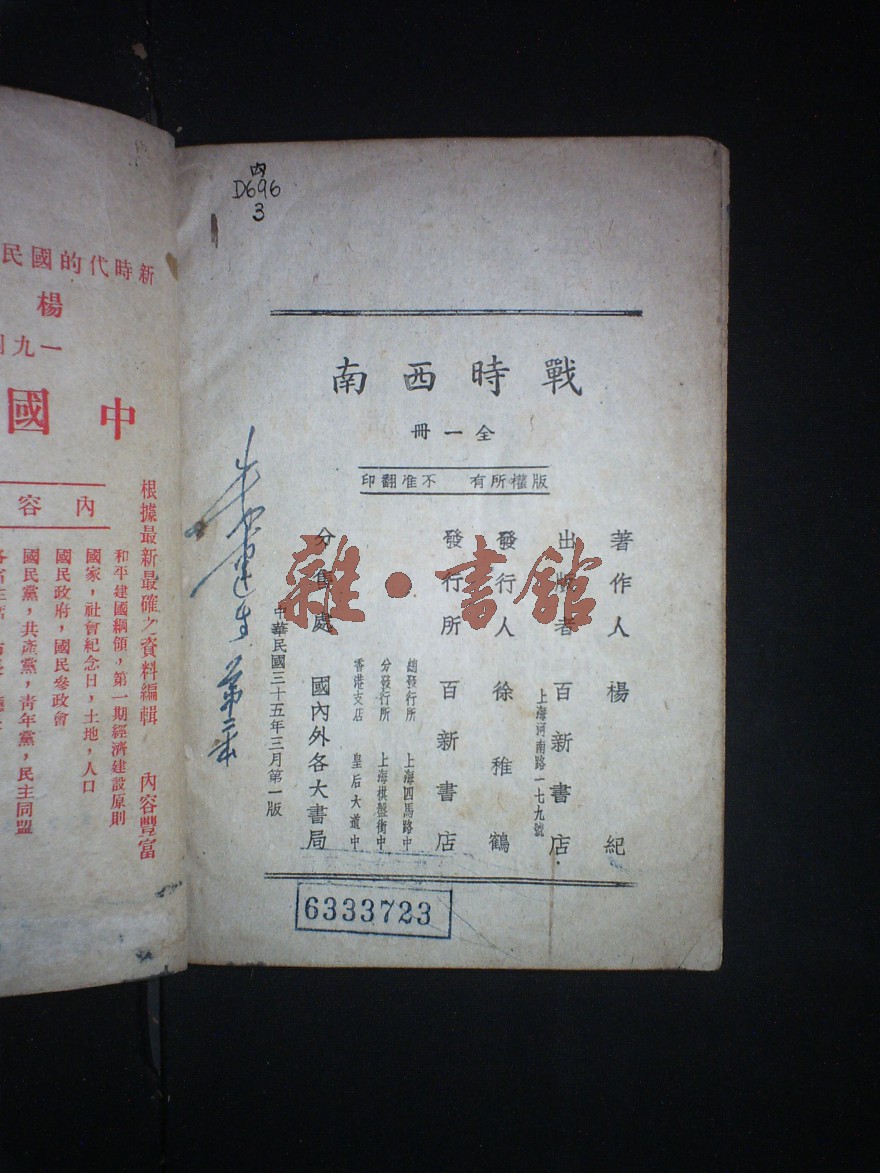 内
D696
3
戰時西南
全一冊
版權所有 不准翻印
著作人 楊紀
出版者 百新書店
上海河南路一七九號
發行人 徐稚鶴
發行所 百新書店
總發行所 上海四馬路中
分發行所 上海棋盤街中
香港支店 皇后大道中
分售處 國內外各大書局
中華民國三十五年三月第一版
6333723
雜·書館
新時代的國民
楊
一九
中國
內容
根據最新最確之資料編輯 內容豐富
和平建國綱領，第一期經濟建設原則
國家，社會紀念日，土地，人口
國民政府，國民參政會
國民黨，共產黨，青年黨，民主同盟